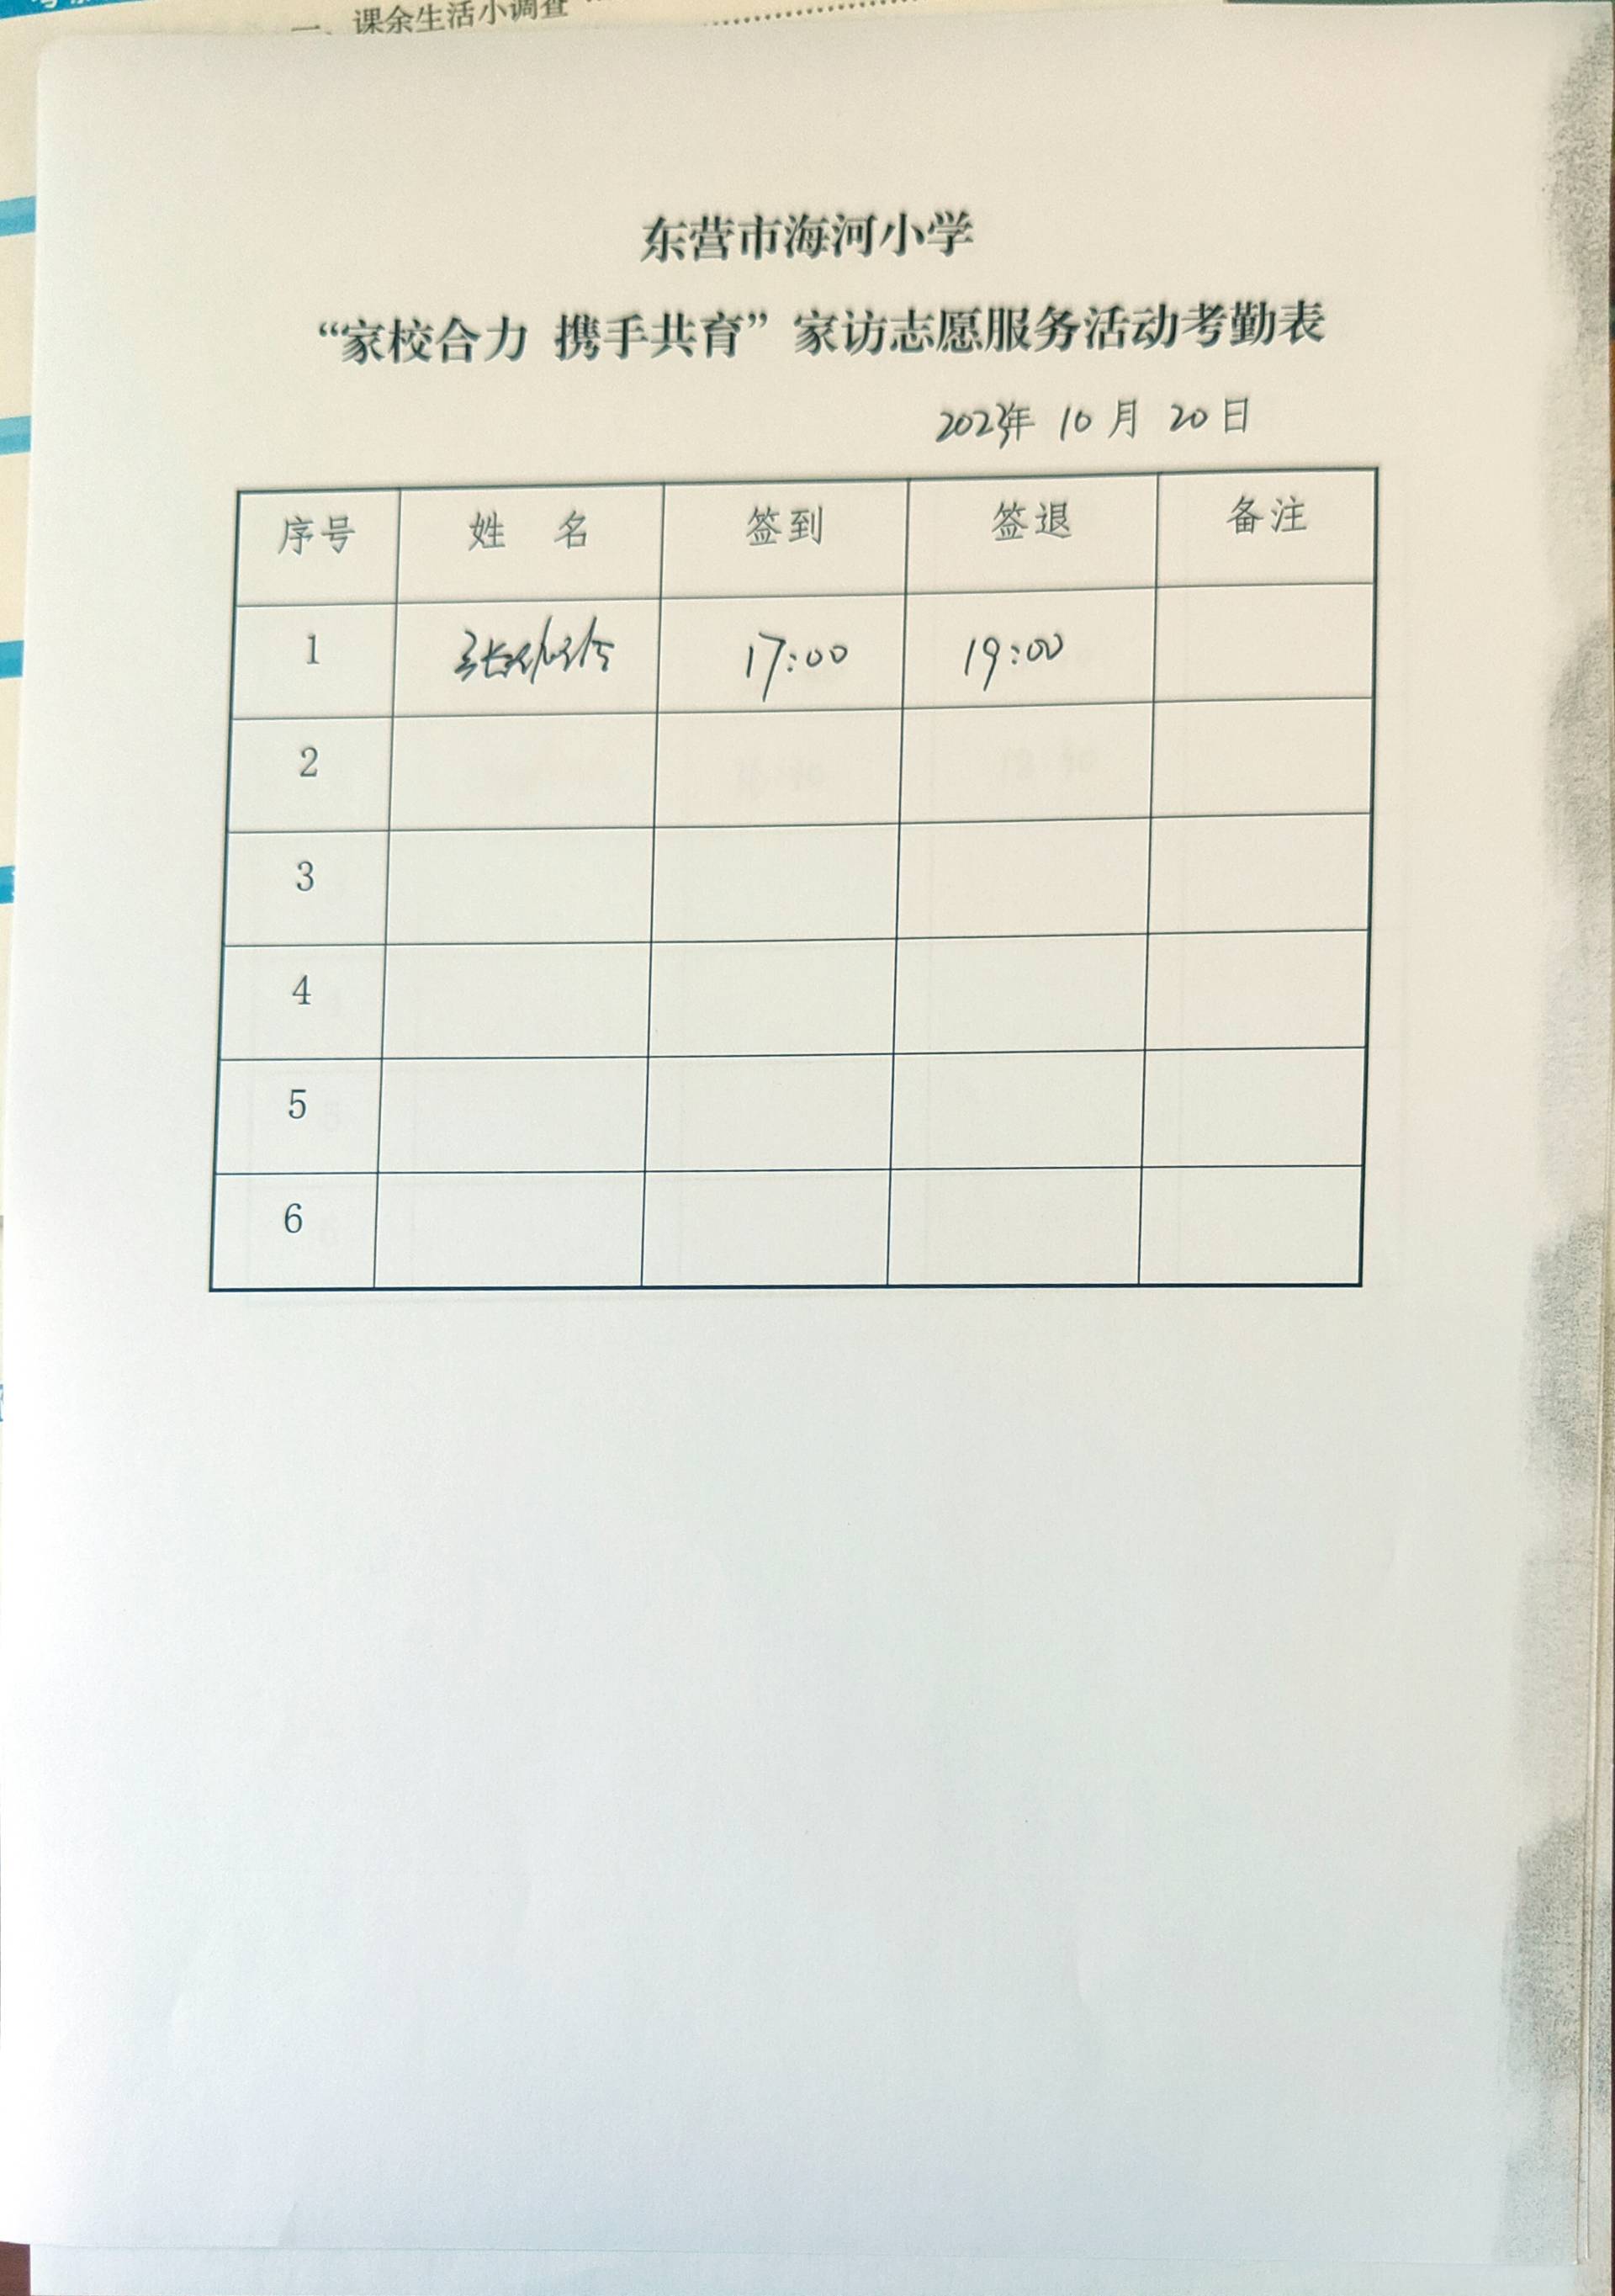 一、课余生活小调查
东营市海河小学
“家校合力 携手共育”家访志愿服务活动考勤表
2023年 10 月 20 日
序号 姓 名 签到 签退 备注
1 17:00 19:00
2
3
4
5
6